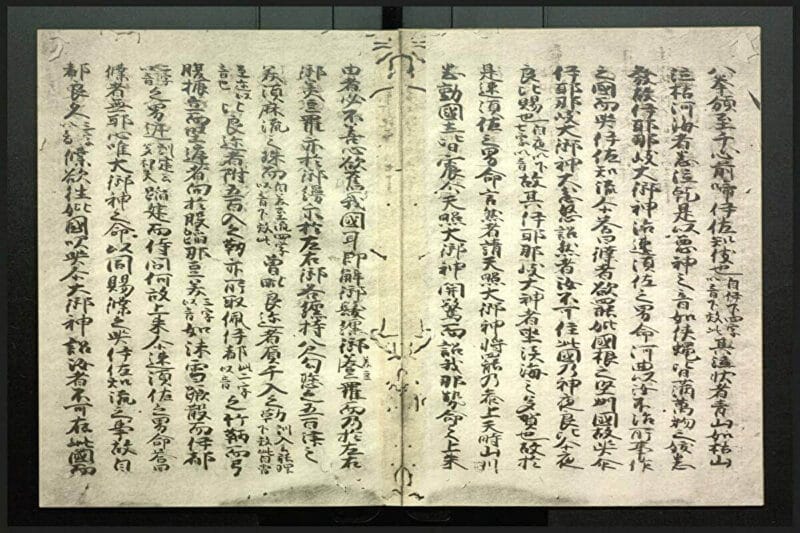 八拳須至于心前啼伊佐知伎也自伊下四字以音下效此其泣状者青山如枯山
泣枯河海者悉泣乾是以悪神之音如狭蝿皆満万物之妖悉
発故伊耶那岐大御神詔速須佐之男命何由以汝不治所事依
之国而哭伊佐知流尒答白僕者欲罷妣国根之堅州国故哭尒
伊耶那岐大御神大忿怒詔然者汝不可住此国乃神夜良比尒夜
良比賜也自夜以下七字以音故其伊耶那岐大神者坐淡海之多賀也故於
是速須佐之男命言然者請天照大御神将罷乃参上天時山川
悉動国土皆震尒天照大御神聞驚而詔我那勢命之上来
由者必不善心欲奪我国耳即解御髪纏御美豆羅而乃於左右
御美豆羅亦於御鬘亦於左右御各纏持八尺勾璁之五百津之
美須麻流之珠而自美至流四字以音下效此曽毗良迩者負千入之靫訓入云能理下效此自曽
至迩以音也比良迩者附五百入之靫亦所取佩伊都此二字以音之竹鞆而弓
腹振立而堅庭者於向股蹈那豆美三字以音如沫雪蹶散而伊都
二字以音之男建訓建云多祁夫蹈建而待問何故上来尒速須佐之男命答白
僕者無邪心唯大御神之命以問賜僕之哭伊佐知流之事故白
都良久三字以音僕欲往妣国以哭尒大御神詔汝者不可在此国而